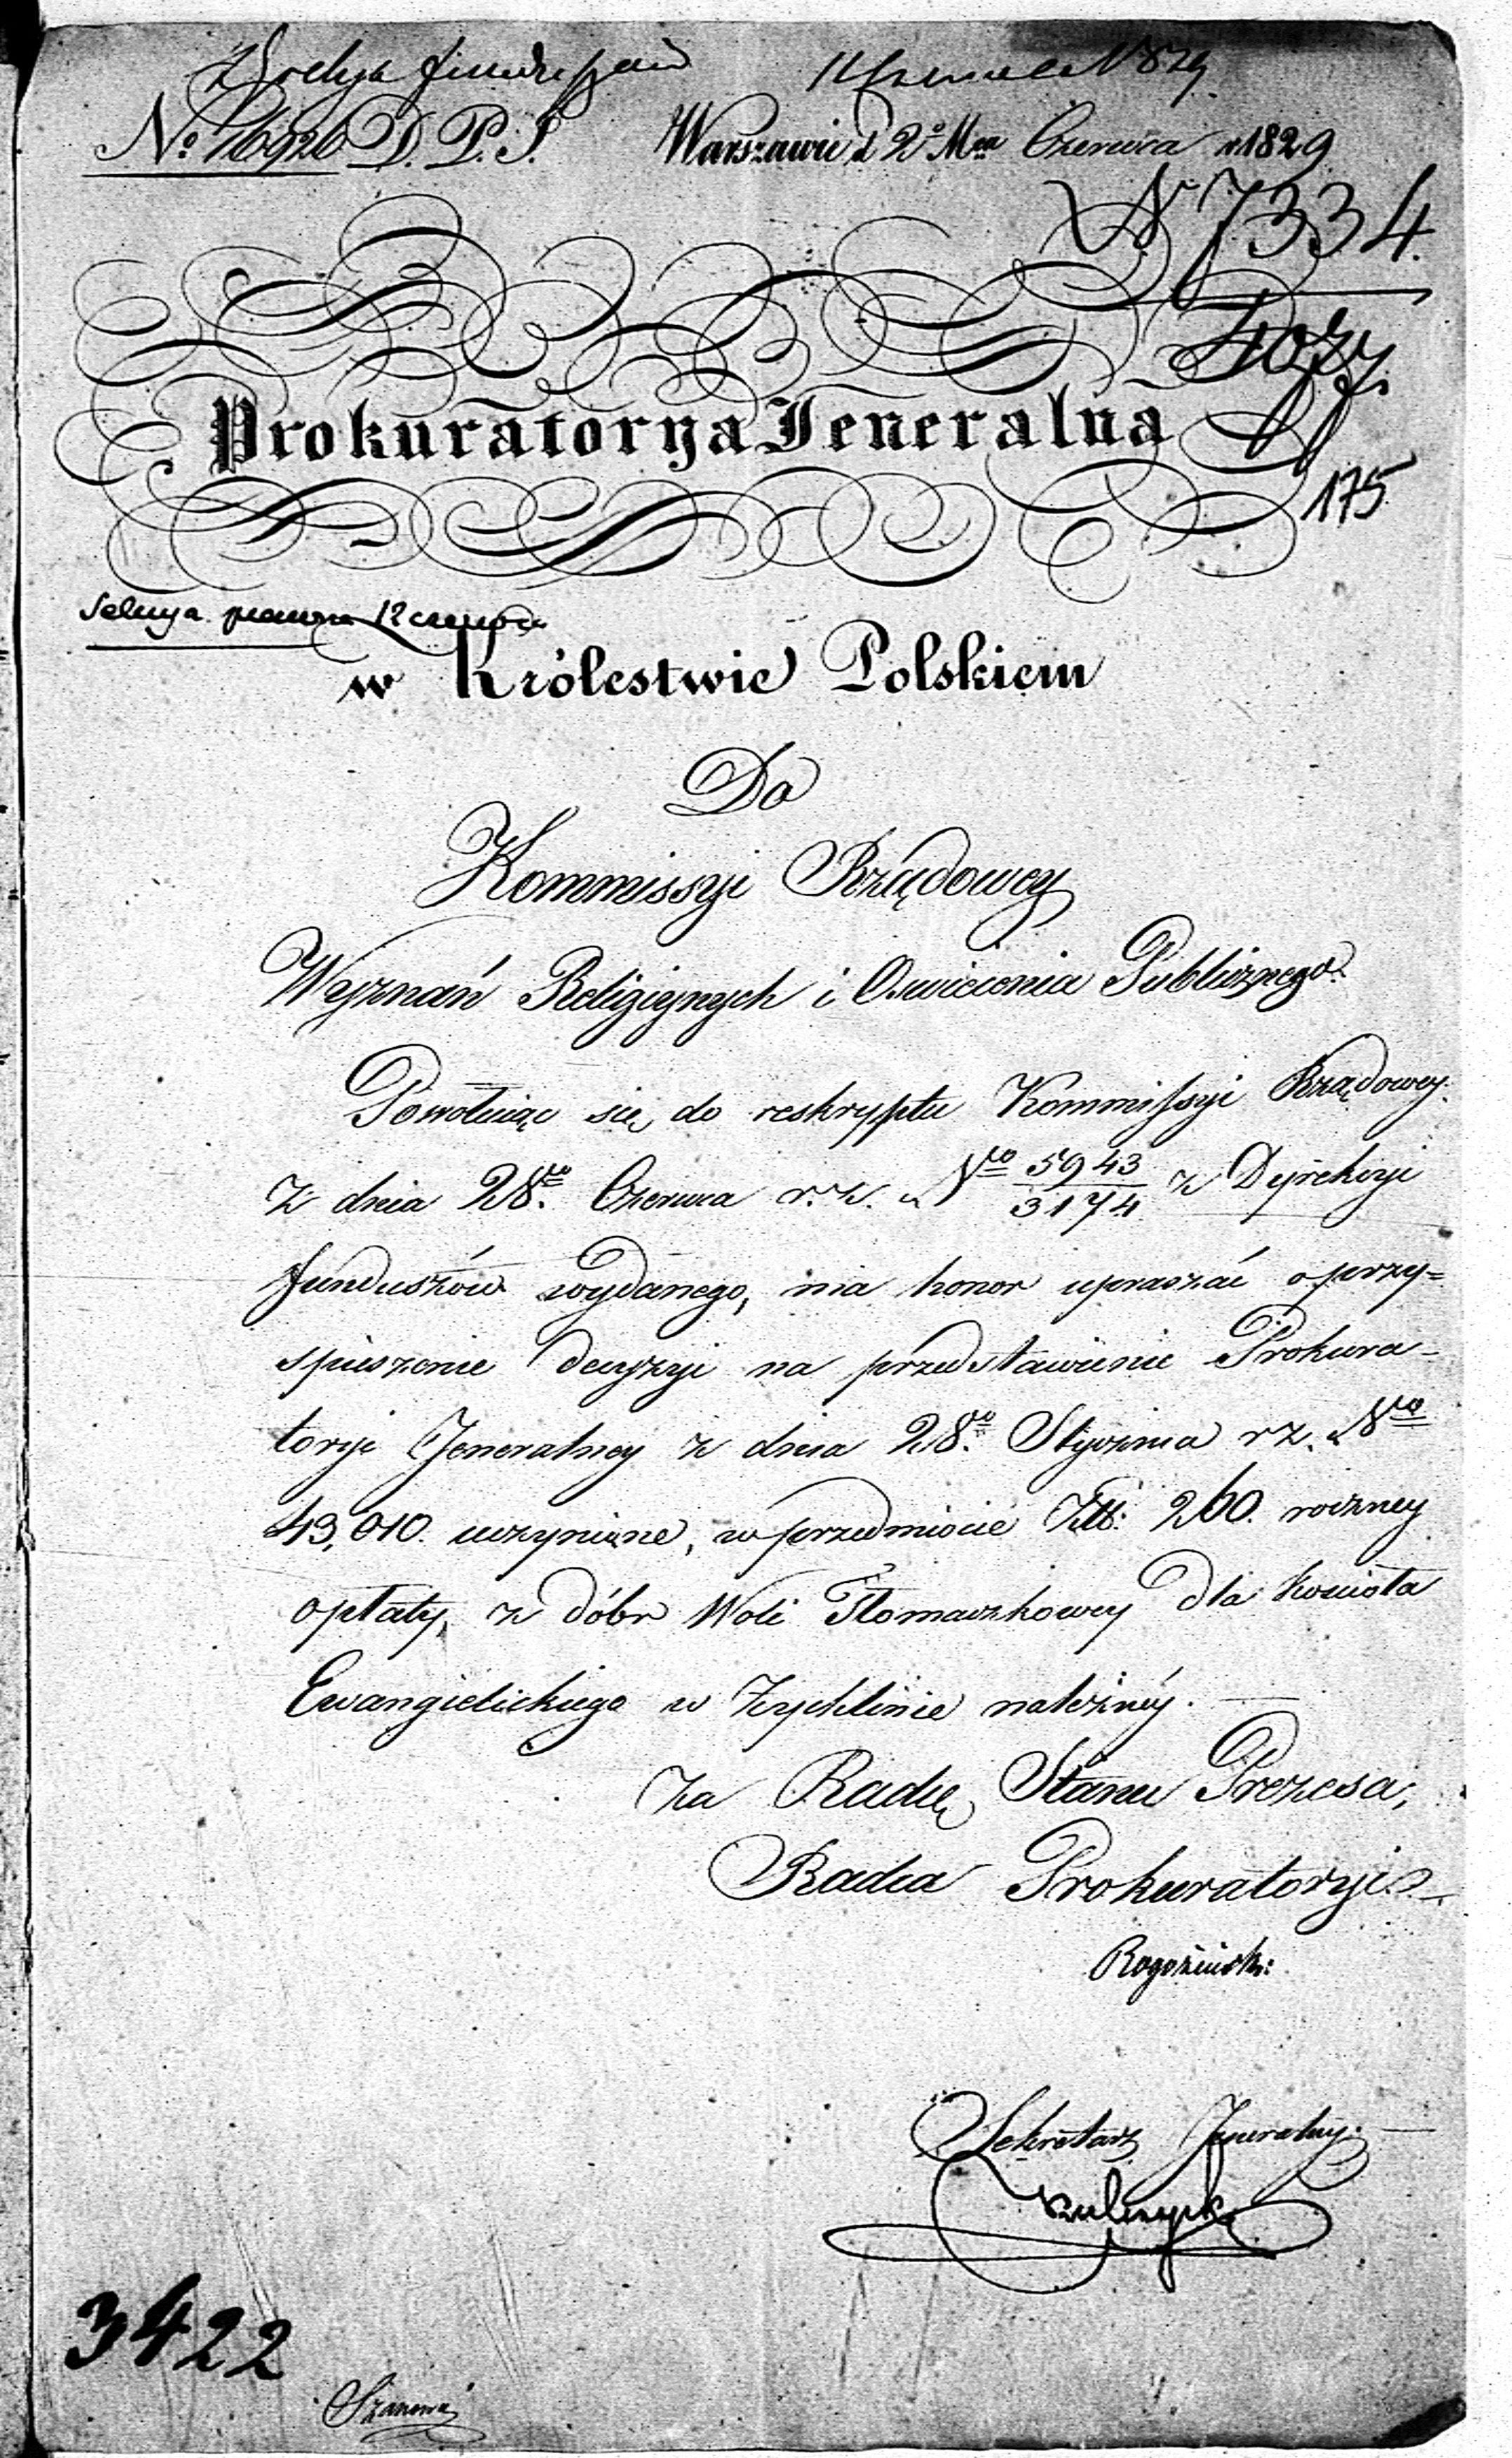 11 Czerwca 1829
No 16926 D. P. J. Warszawie d 2º Mca Czerwca r 1829
N 7334.
175
Prokuratorya Jeneralna
Sekcya prawna 12 czerwca
w Królestwie Polskiem
Do
Kommissyi Rządowey
Wyznań Religiynych i Oswiecenia Publicznego.
Powołuiąc się do reskryptu Kommissyi Rządowey
z dnia 28go Czerwca r. z. Nro 5943/3174 z Dyrekcyi
Funduszów wydanego, ma honor upraszać o przy=
spieszenie decyzyi na przedstawienie Prokura-
toryi Jeneralney z dnia 28go Stycznia r z. Nro
43,010. uczynione, w przedmiocie Złt: 260. roczney
opłaty, z dóbr Woli Tłomaczkowey dla kościoła
Ewangielickiego w Żychlinie należnéy.
Za Radcę Stanu Prezesa,
Radca Prokuratoryi
Rogoziński
Sekretarz Jeneralny.
3422